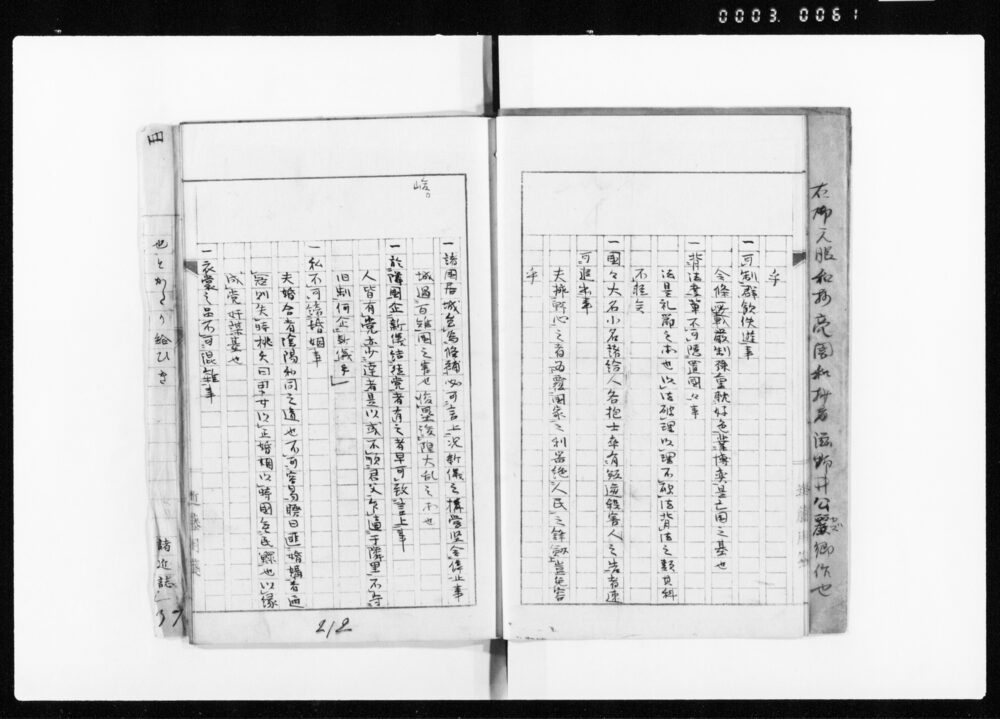 0003.0061
乎
一 可制群飲佚遊事
令條所載嚴制殊重耽好色業博奕是亡国之基也
一 背法度輩不可隠置國々事
法是礼節之本也以法破理以理不破法背法之類其科
不軽矣
一 國々大名小名諸給人各抱士卒有
殺害人之告者速
可追出事
夫挟野心之者為覆国家之利器絶人民之鋒剣豈足容
乎
一 諸國居城雖為修補必可言上況新儀之構営堅令停止事
城過百雉国之害也峻塁浚隍大乱之本也
一 於隣國企新儀結徒党者有之者早可致言上事
人皆有党亦少達者是以或不順君父乍違于隣里不守
旧制何企新儀乎
一 私不可結婚姻事
夫婚合者陰陽和同之道也不可容易睽曰匪婚媾志通
寇則失時桃夭曰男女以正婚姻以時国無鰥民也以縁
成党奸謀基也
一 衣裳之品不可混雑事
212
四
也とかくり給ひき
諸近誌
37